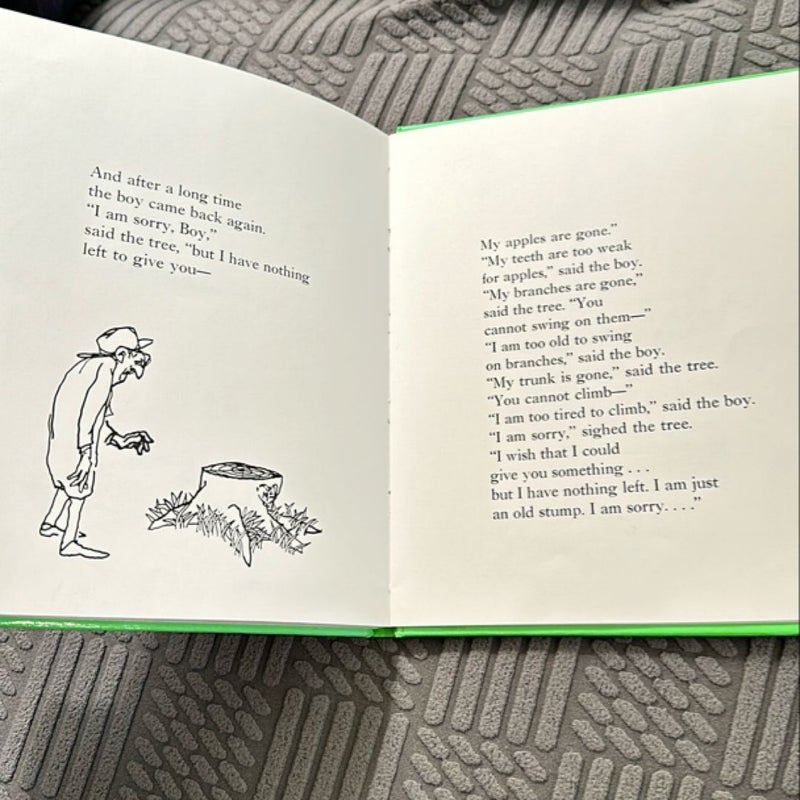 And after a long time
the boy came back again.
“I am sorry, Boy,”
said the tree, “but I have nothing
left to give you—
My apples are gone.”
“My teeth are too weak
for apples,” said the boy.
“My branches are gone,”
said the tree. “You
cannot swing on them—”
“I am too old to swing
on branches,” said the boy.
“My trunk is gone,” said the tree.
“You cannot climb—”
“I am too tired to climb,” said the boy.
“I am sorry,” sighed the tree.
“I wish that I could
give you something . . .
but I have nothing left. I am just
an old stump. I am sorry. . . .”